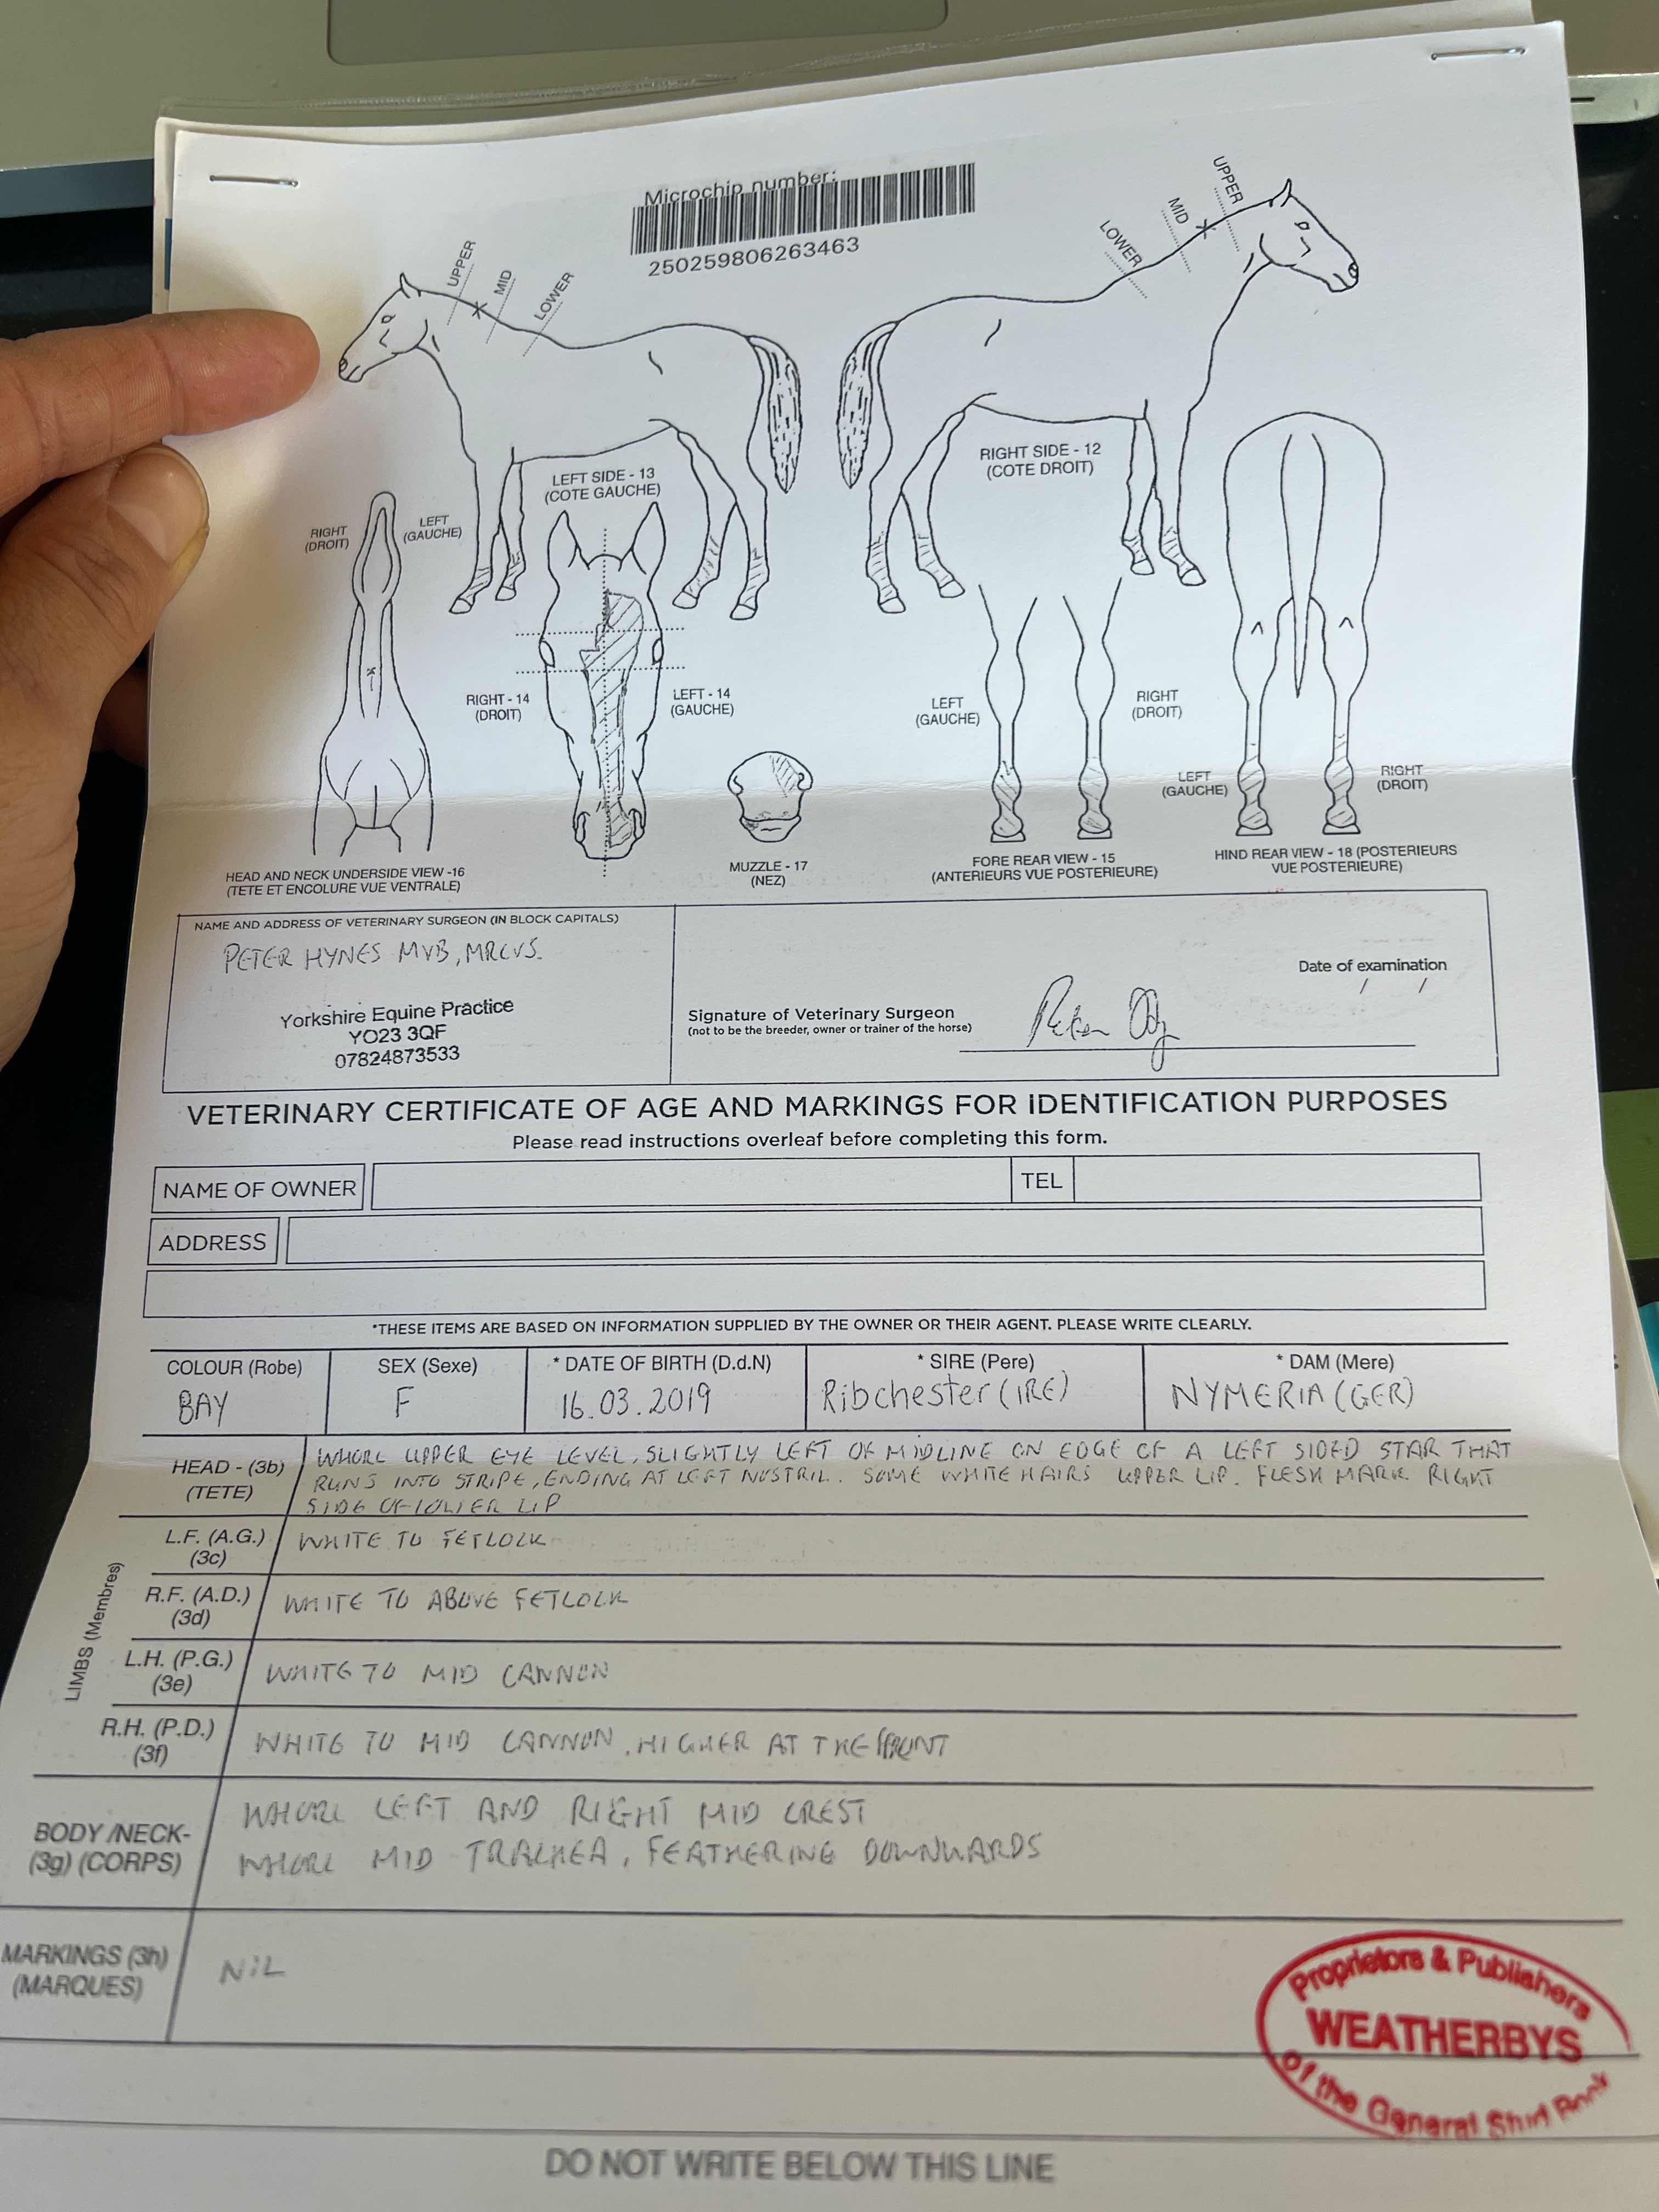 Microchip number:
250259806263463
UPPER
MID
LOWER
LOWER
MID
UPPER
LEFT SIDE - 13
(COTE GAUCHE)
RIGHT SIDE - 12
(COTE DROIT)
RIGHT
(DROIT)
LEFT
(GAUCHE)
RIGHT - 14
(DROIT)
LEFT - 14
(GAUCHE)
LEFT
(GAUCHE)
RIGHT
(DROIT)
LEFT
(GAUCHE)
RIGHT
(DROIT)
HEAD AND NECK UNDERSIDE VIEW -16
(TETE ET ENCOLURE VUE VENTRALE)
MUZZLE - 17
(NEZ)
FORE REAR VIEW - 15
(ANTERIEURS VUE POSTERIEURE)
HIND REAR VIEW - 18 (POSTERIEURS
VUE POSTERIEURE)
NAME AND ADDRESS OF VETERINARY SURGEON (IN BLOCK CAPITALS)
PETER HYNES MVB, MRCVS.
Yorkshire Equine Practice
YO23 3QF
07824873533
Date of examination
/ /
Signature of Veterinary Surgeon
(not to be the breeder, owner or trainer of the horse)
VETERINARY CERTIFICATE OF AGE AND MARKINGS FOR IDENTIFICATION PURPOSES
Please read instructions overleaf before completing this form.
NAME OF OWNER
TEL
ADDRESS
*THESE ITEMS ARE BASED ON INFORMATION SUPPLIED BY THE OWNER OR THEIR AGENT. PLEASE WRITE CLEARLY.
COLOUR (Robe) SEX (Sexe) * DATE OF BIRTH (D.d.N) * SIRE (Pere) * DAM (Mere)
BAY F 16.03.2019 Ribchester (IRE) NYMERIA (GER)
HEAD - (3b)
(TETE)
WHORL UPPER EYE LEVEL, SLIGHTLY LEFT OF MIDLINE ON EDGE OF A LEFT SIDED STAR THAT
RUNS INTO STRIPE, ENDING AT LEFT NOSTRIL. SOME WHITE HAIRS UPPER LIP. FLESH MARK RIGHT
SIDE OF LOWER LIP
LIMBS (Membres)
L.F. (A.G.)
(3c)
WHITE TO FETLOCK
R.F. (A.D.)
(3d)
WHITE TO ABOVE FETLOCK
L.H. (P.G.)
(3e)
WHITE TO MID CANNON
R.H. (P.D.)
(3f)
WHITE TO MID CANNON, HIGHER AT THE FRONT
BODY /NECK-
(3g) (CORPS)
WHORL LEFT AND RIGHT MID CREST
WHORL MID TRACHEA, FEATHERING DOWNWARDS
MARKINGS (3h)
(MARQUES)
NIL
Proprietors & Publishers
WEATHERBYS
of the General Stud Book
DO NOT WRITE BELOW THIS LINE